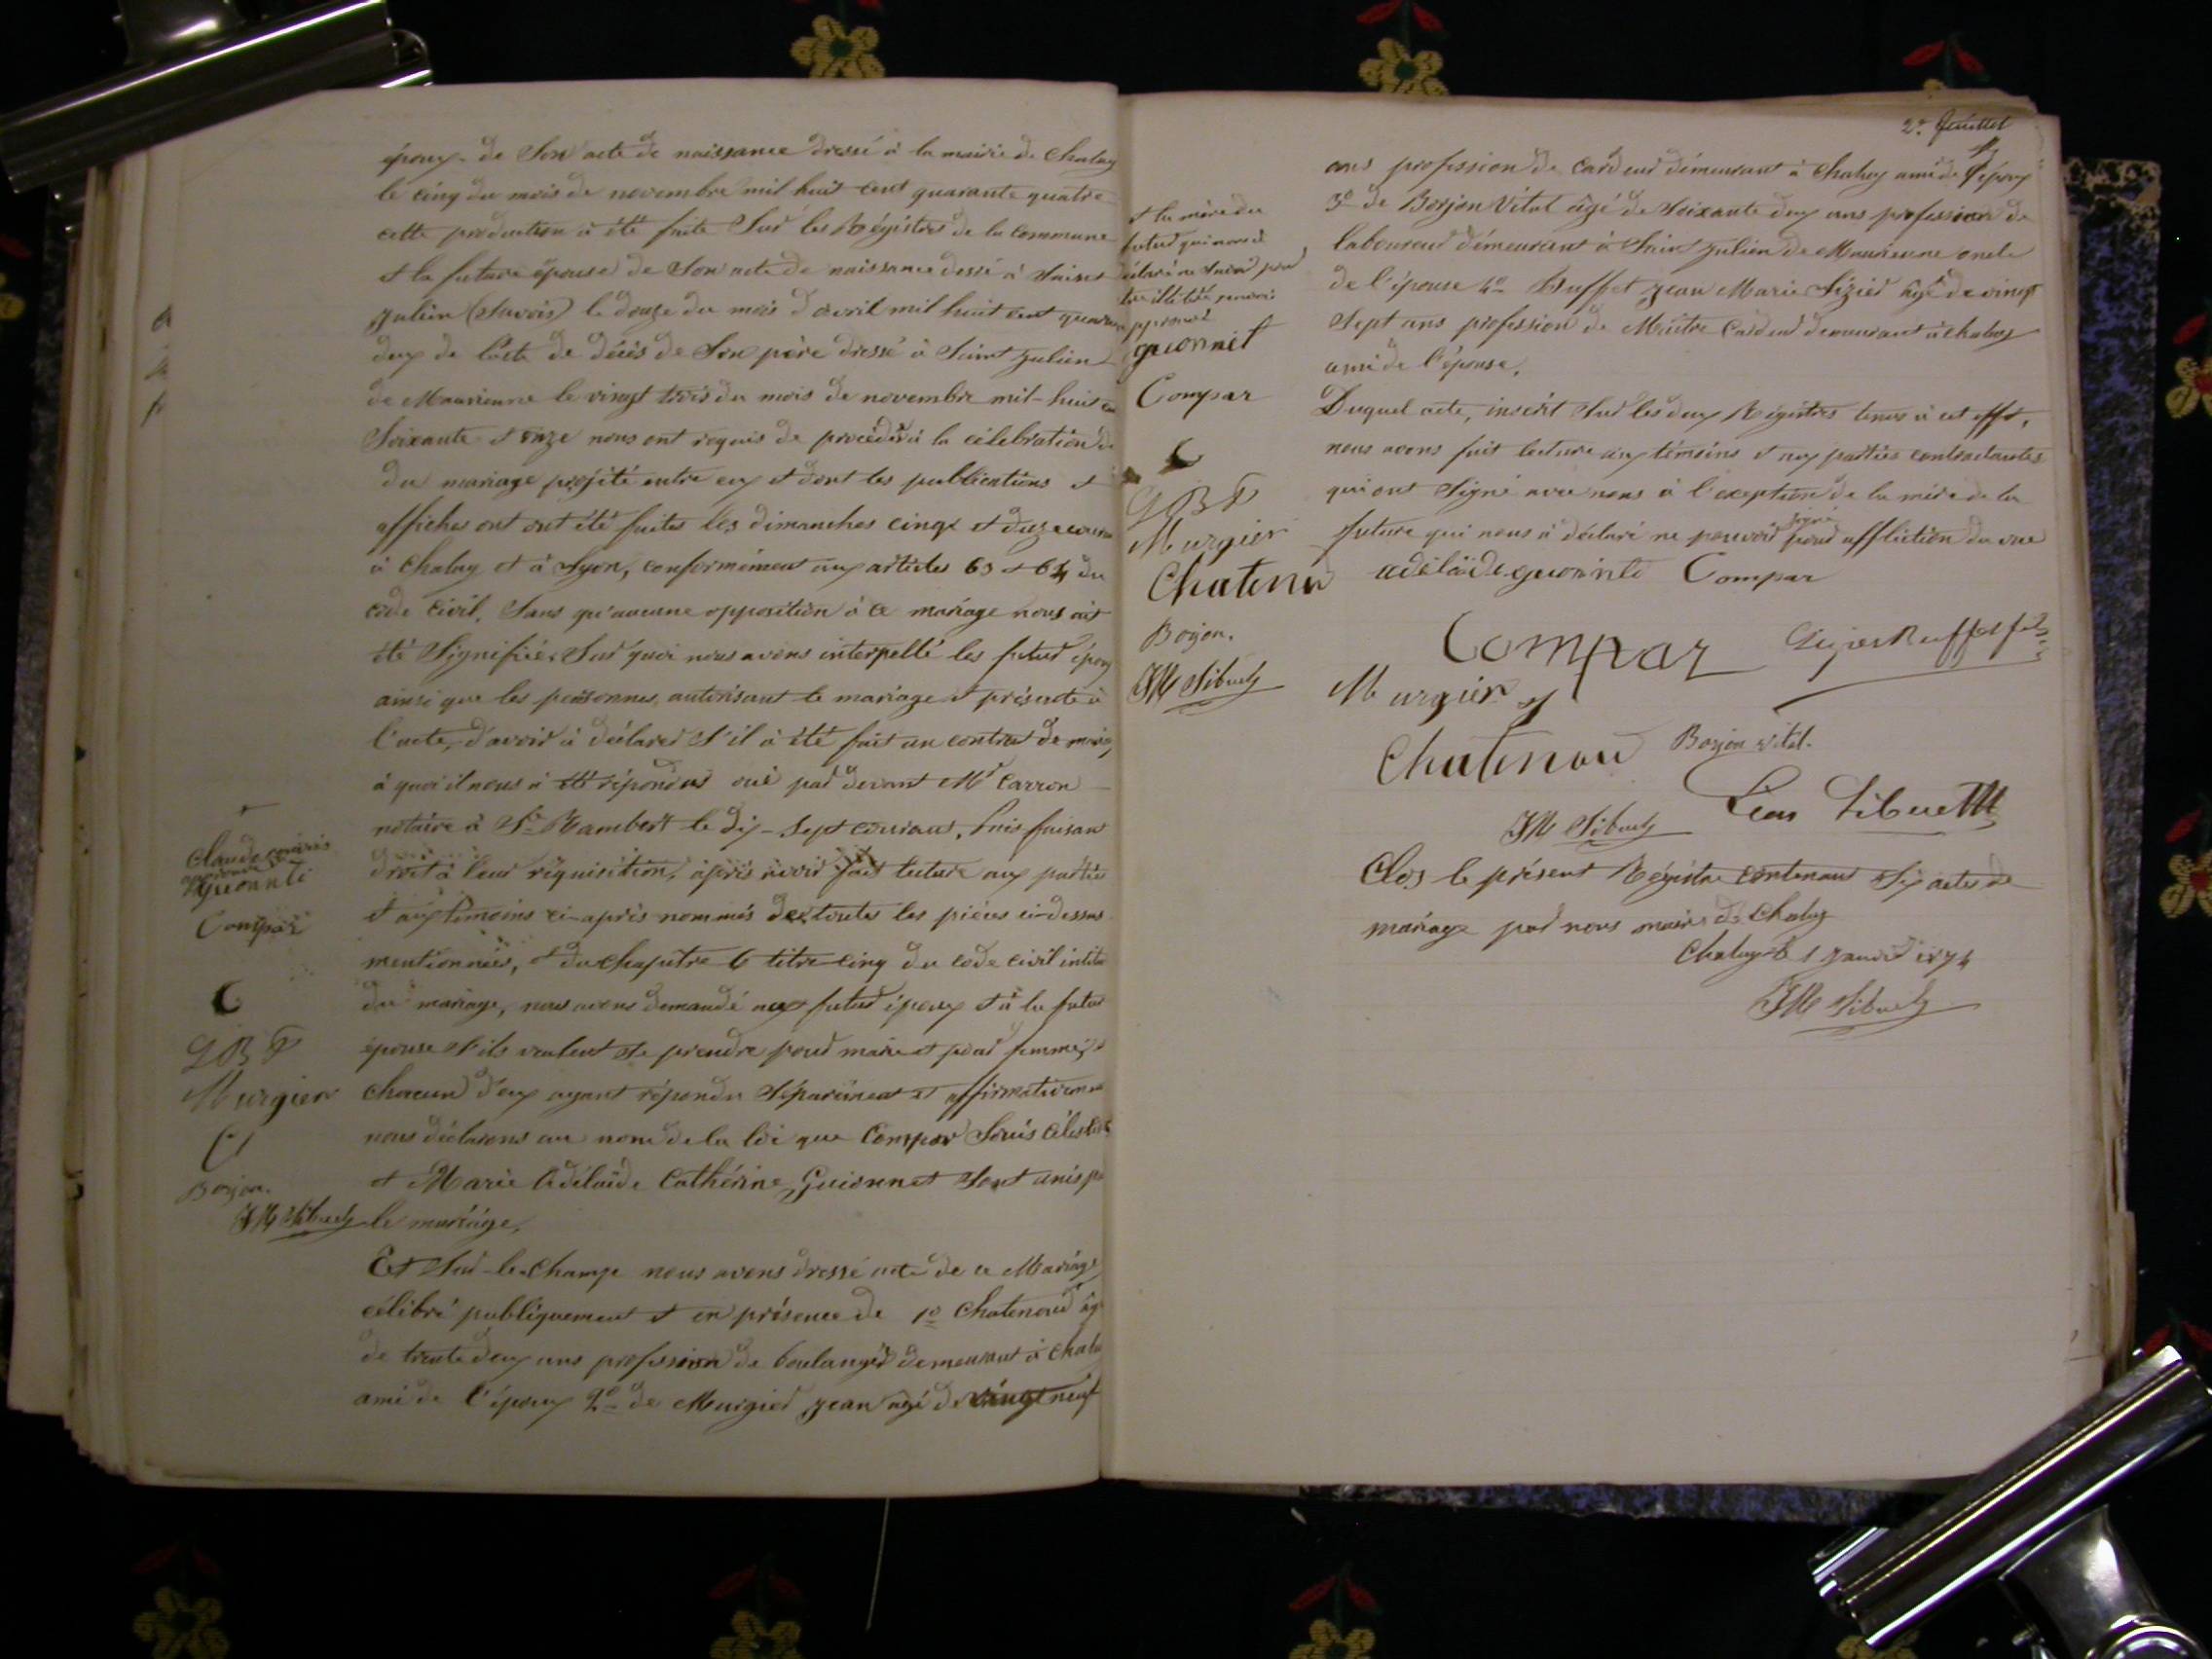 époux de Son acte de naissance dressé à la mairie de Chaley
le cinq du mois de novembre mil huit cent quarante quatre
cette production à été faite Sur les Régistres de la commune
et la future épouse de Son acte de naissance dessé à Saint
Julien (Savoie) le douze du mois d'avril mil huit cent
deux de l'acte de décès de Son père dressé à Saint Julien
de Maurienne le vingt trois du mois de novembre mil-huit
Soixante et onze nous ont requis de procéder à la célébration de
du mariage projété entre eux et dont les publications et
affiches ont ont été faites les dimanches cinq et douze
à Chaley et à Lyon, conformément aux articles 63 et 64 du
code civil, Sans qu'aucune opposition à ce mariage nous ait
été Signifiée, Sur quoi nous avons interpellé les futur époux
ainsi que les personnes autorisant le mariage et présente à
l'acte, d'avoir à déclarer S'il à été fait un contrat de
à quoi il nous à été répondus oui par devant Mr Carron
notaire à St Rambert le dix-sept courant, Puis faisant
droit à leur réquisition, après avoir fait lecture aux parties
et aux témoins ci-après nommés de toutes les pièces ci-dessus
mentionnées, et du chapitre 6 titre cinq du code civil
du mariage, nous avons demandé aux futur époux et à la futur
épouse S'ils veulent Se prendre pour mari et pour femme, et
chacun d'eux ayant répondu Séparément et
nous déclarons au nom de la loi que Compar Louis
et Marie Adélaïde Cathérine Guionnet Sont unis
le mariage,
Et Sur-le-Champ nous avons dressé acte de ce Mariage
célébré publiquement et en présence de 1º Chatenoud
de trente deux ans profession de boulanger demeurant à
ami de l'époux 2º de Murgier Jean agé de vingt neuf
Compar
G B F
Murgier
Borjon.
JM Sibuet
et la mère du
futur qui nous à
Guonnet
Compar
G B F
Murgier
Chatenu
Borjon.
JM Sibuet
ans profession de cardeur démeurant à Chaley ami de l'époux
3º de Borjon Vital âgé de Soixante deux ans profession de
laboureur démeurant à Saint Julien de Maurienne oncle
de l'épouse 4º Buffet Jean Marie Lizier âgé de vingt
Sept ans profession de Maitre Cardeur demeurant à Chaley
ami de l'épouse,
Duquel acte, inscrit Sur les deux Régistres tenus à cet effet,
nous avons fait lecture aux témoins et aux parties contractantes
qui ont Signé avec nous à l'exeption de la mère de la
future qui nous à déclaré ne pouvoir signé pour affliction de vue
adélaïde guonnte Compar
Compar
Murgier
Chatenou Borjon Vital.
JM Sibuet Léon Sibuet
Clos le présent Régistre contenant Six actes de
mariage par nous maire de Chaley
Chaley le 1 Janvier 1874
JM Sibuet